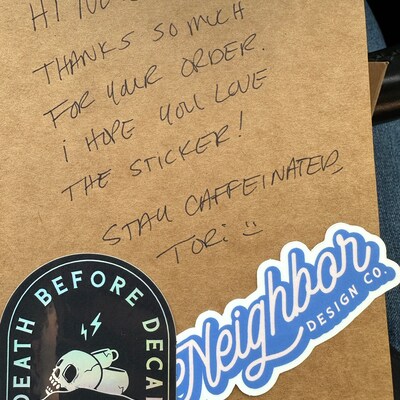 HI
THANKS SO MUCH
FOR YOUR ORDER.
i HOPE YOU LOVE
THE STICKER!
STAY CAFFEINATED,
TORi
DEATH BEFORE DECA
Neighbor
DESIGN CO.